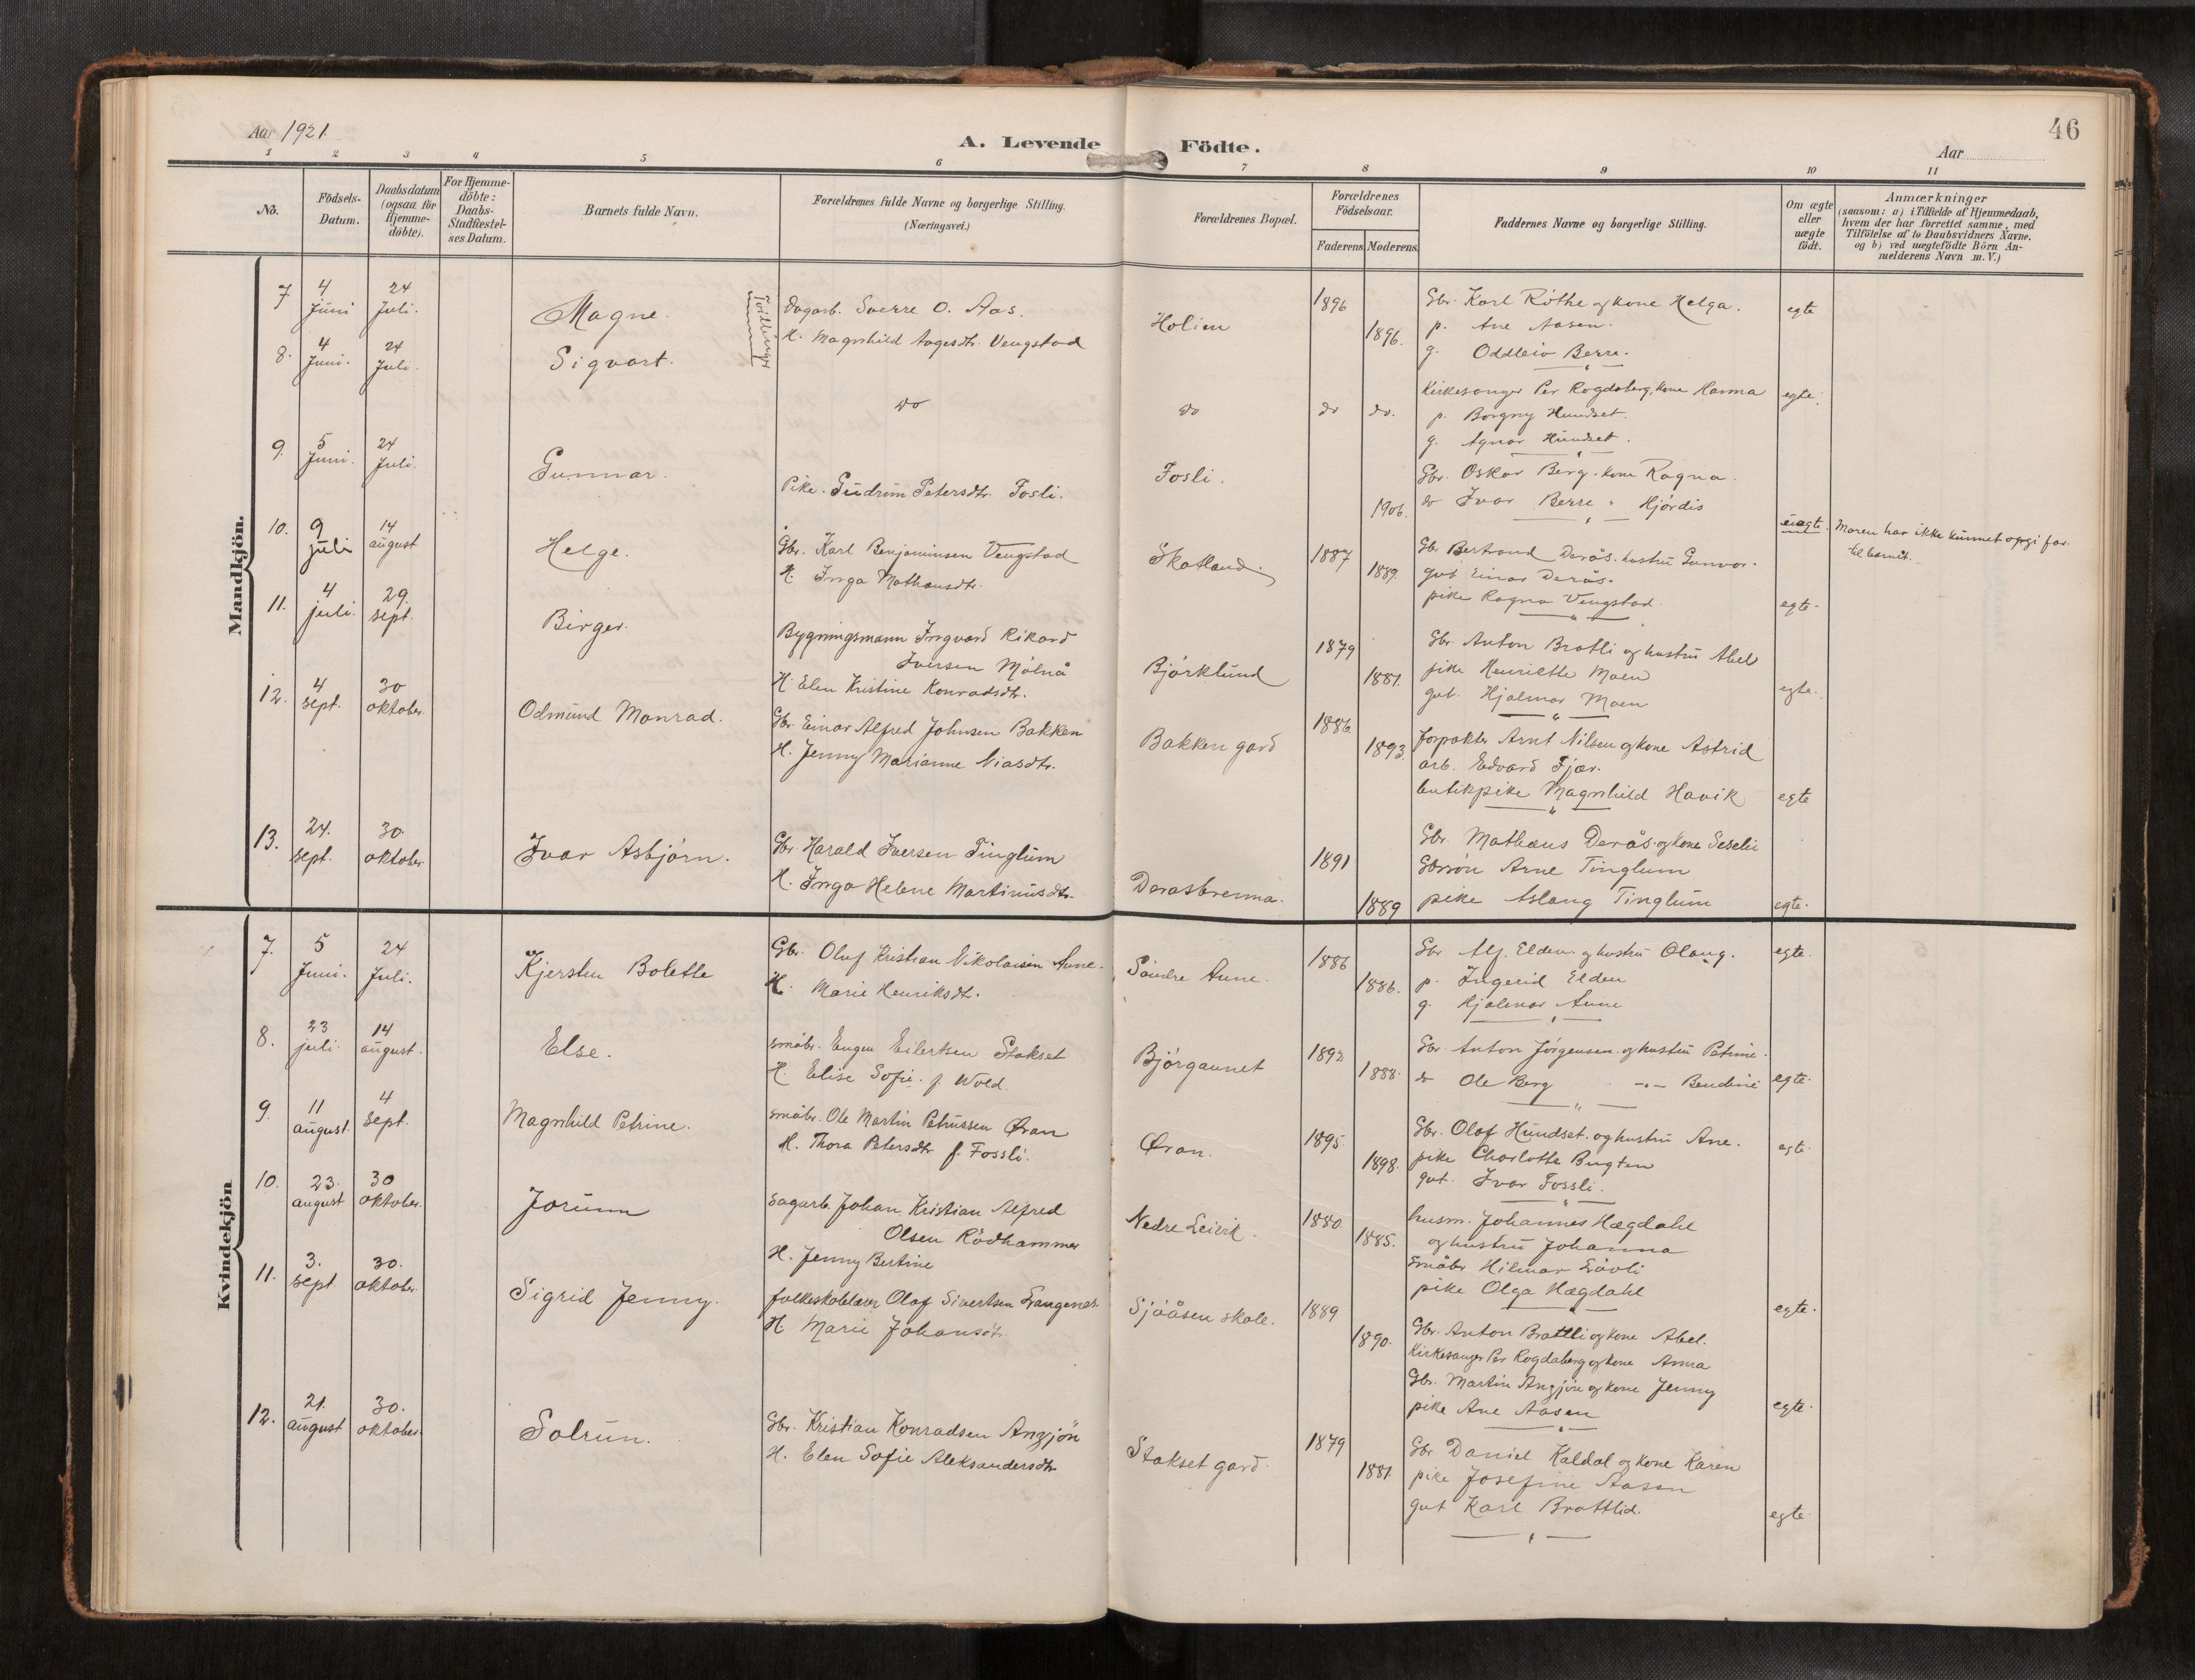 Aar 1921.
A. Levende Födte.
46
Aar
1 2 3 4 5 6 7 8 9 10 11
No.
Födsels-Datum.
Daabsdatum (ogsaa för Hjemme-döbte).
For Hjemme-döbte: Daabs-Stadfæstel-ses Datum.
Barnets fulde Navn.
Forældrenes fulde Navne og borgerlige Stilling. (Næringsvei.)
Forældrenes Bopæl.
Forældrenes Födselsaar.
Faderens. Moderens.
Faddernes Navne og borgerlige Stilling.
Om ægte eller uægte födt.
Anmærkninger
(saasom: a) i Tilfælde af Hjemmedaab,
hvem der har forrettet samme, med
Tilföielse af to Daabsvidners Navne,
og b) ved uægtefödte Börn An-
melderens Navn m. V.)
Mandkjön.
7 4 Juni 24 Juli. Magne. Tvillinger
Dagarb. Sverre O. Aas.
H. Magnhild Aagesdtr. Vengstad
Holien 1896 1896.
Gbr. Karl Röthe og kone Helga.
p. Ane Aasen.
g. Oddleiv Berre.
egte
8. 4 Juni. 24 Juli. Sigvart.
do do do do.
Kirkesanger Per Rogdaberg, kone Hanna
p. Borgny Hundset.
g. Agnar Hundset.
egte.
9. 5 Juni. 24 Juli. Gunnar.
Pike. Gudrun Petersdtr. Fosli.
Fosli. 1906.
Gbr. Oskar Berg. kone Ragna.
do Ivar Berre " Hjördis
uægte. Moren har ikke kunnet opgi far
til barnet.
10. 9 juli 14 august Helge.
Gbr. Karl Benjaminsen Vengstad
H. Inga Mathausdtr.
Skatland. 1887 1889.
Gbr Bertrand Derås. hustru Gunvor.
gut Einar Derås.
pike Ragna Vengstad
egte.
11. 4 juli. 29. sept. Birger.
Bygningsmann Ingvard Rikard
Iversen Mölnå
H. Elen Kristine Konradsdtr.
Björklund 1879 1881.
Gbr. Anton Bratli og hustru Abel
pike Henriette Moen
gut. Hjalmar Moen
egte.
12. 4 sept. 30 oktober. Odmund Monrad.
Gbr. Einar Alfred Johnsen Bakken
H. Jenny Marianne Niasdtr.
Bakken gard 1886. 1893.
forpakter Arnt Nilsen og kone Astrid
arb. Edvard Fjær.
butikpike Magnhild Havik
egte
13. 24. sept. 30. oktober. Ivar Asbjörn.
Gbr Harald Iversen Tinglum
H. Inga Helene Martinusdtr.
Derasbrenna. 1891 1889
Gbr. Mathæus Derås og kone Seselie
Gbrsön Arne Tinglum
pike Aslaug Tinglum
egte.
Kvindekjön
7. 5 Juni. 24 Juli. Kjersten Bolette
Gbr. Oluf Kristian Nikolaisen Aune.
H. Marie Henriksdtr.
Söndre Aune. 1886 1886.
Gbr Alf. Elden og hustru Olaug.
p. Ingerid Elden
g. Hjalmar Aune
egte.
8. 23 juli. 14 august. Else.
småbr. Eugen Eilertsen Stakset
H. Elise Sofie f. Wold.
Björgaunet 1892 1888.
Gbr. Anton Jörgensen og hustru Petrine.
do Ole Berg -"- Bendine
egte.
9. 11 august. 4 sept. Magnhild Petrine.
småbr. Ole Martin Petrussen Øran
H. Thora Petersdtr f. Fossli.
Øran. 1895 1898.
Gbr. Olaf Hundset og hustru Ane.
pike Charlotte Bugten
gut. Ivar Fossli.
egte.
10. 23. august 30 oktober. Jorunn
sagarb. Johan Kristian Alfred
Olsen Rödhammer
H. Jenny Bertine
Nedre Leirik. 1880. 1885.
husm. Johannes Hægdahl
og hustru Johanna
småbr Hilmar Lövli
pike Olga Hægdahl
egte.
11. 3. sept 30. oktober. Sigrid Jenny.
folkeskolelærer Olaf Sivertsen Langenes
H. Marie Johansdtr.
Sjöåsen skole. 1889 1890.
Gbr. Anton Brattli og kone Abel.
Kirkesanger Per Rogdaberg og kone Anna
Gbr. Martin Angjön og kone Jenny
pike Ane Aasen
egte.
12. 21. august 30. oktober. Solrun.
Gbr. Kristian Konradsen Angjön
H. Elen Sofie Aleksandersdtr
Stakset gard. 1879 1881.
Gbr Daniel Kaldal og kone Karen
pike Josefine Aasen
gut Karl Brattlid.
egte